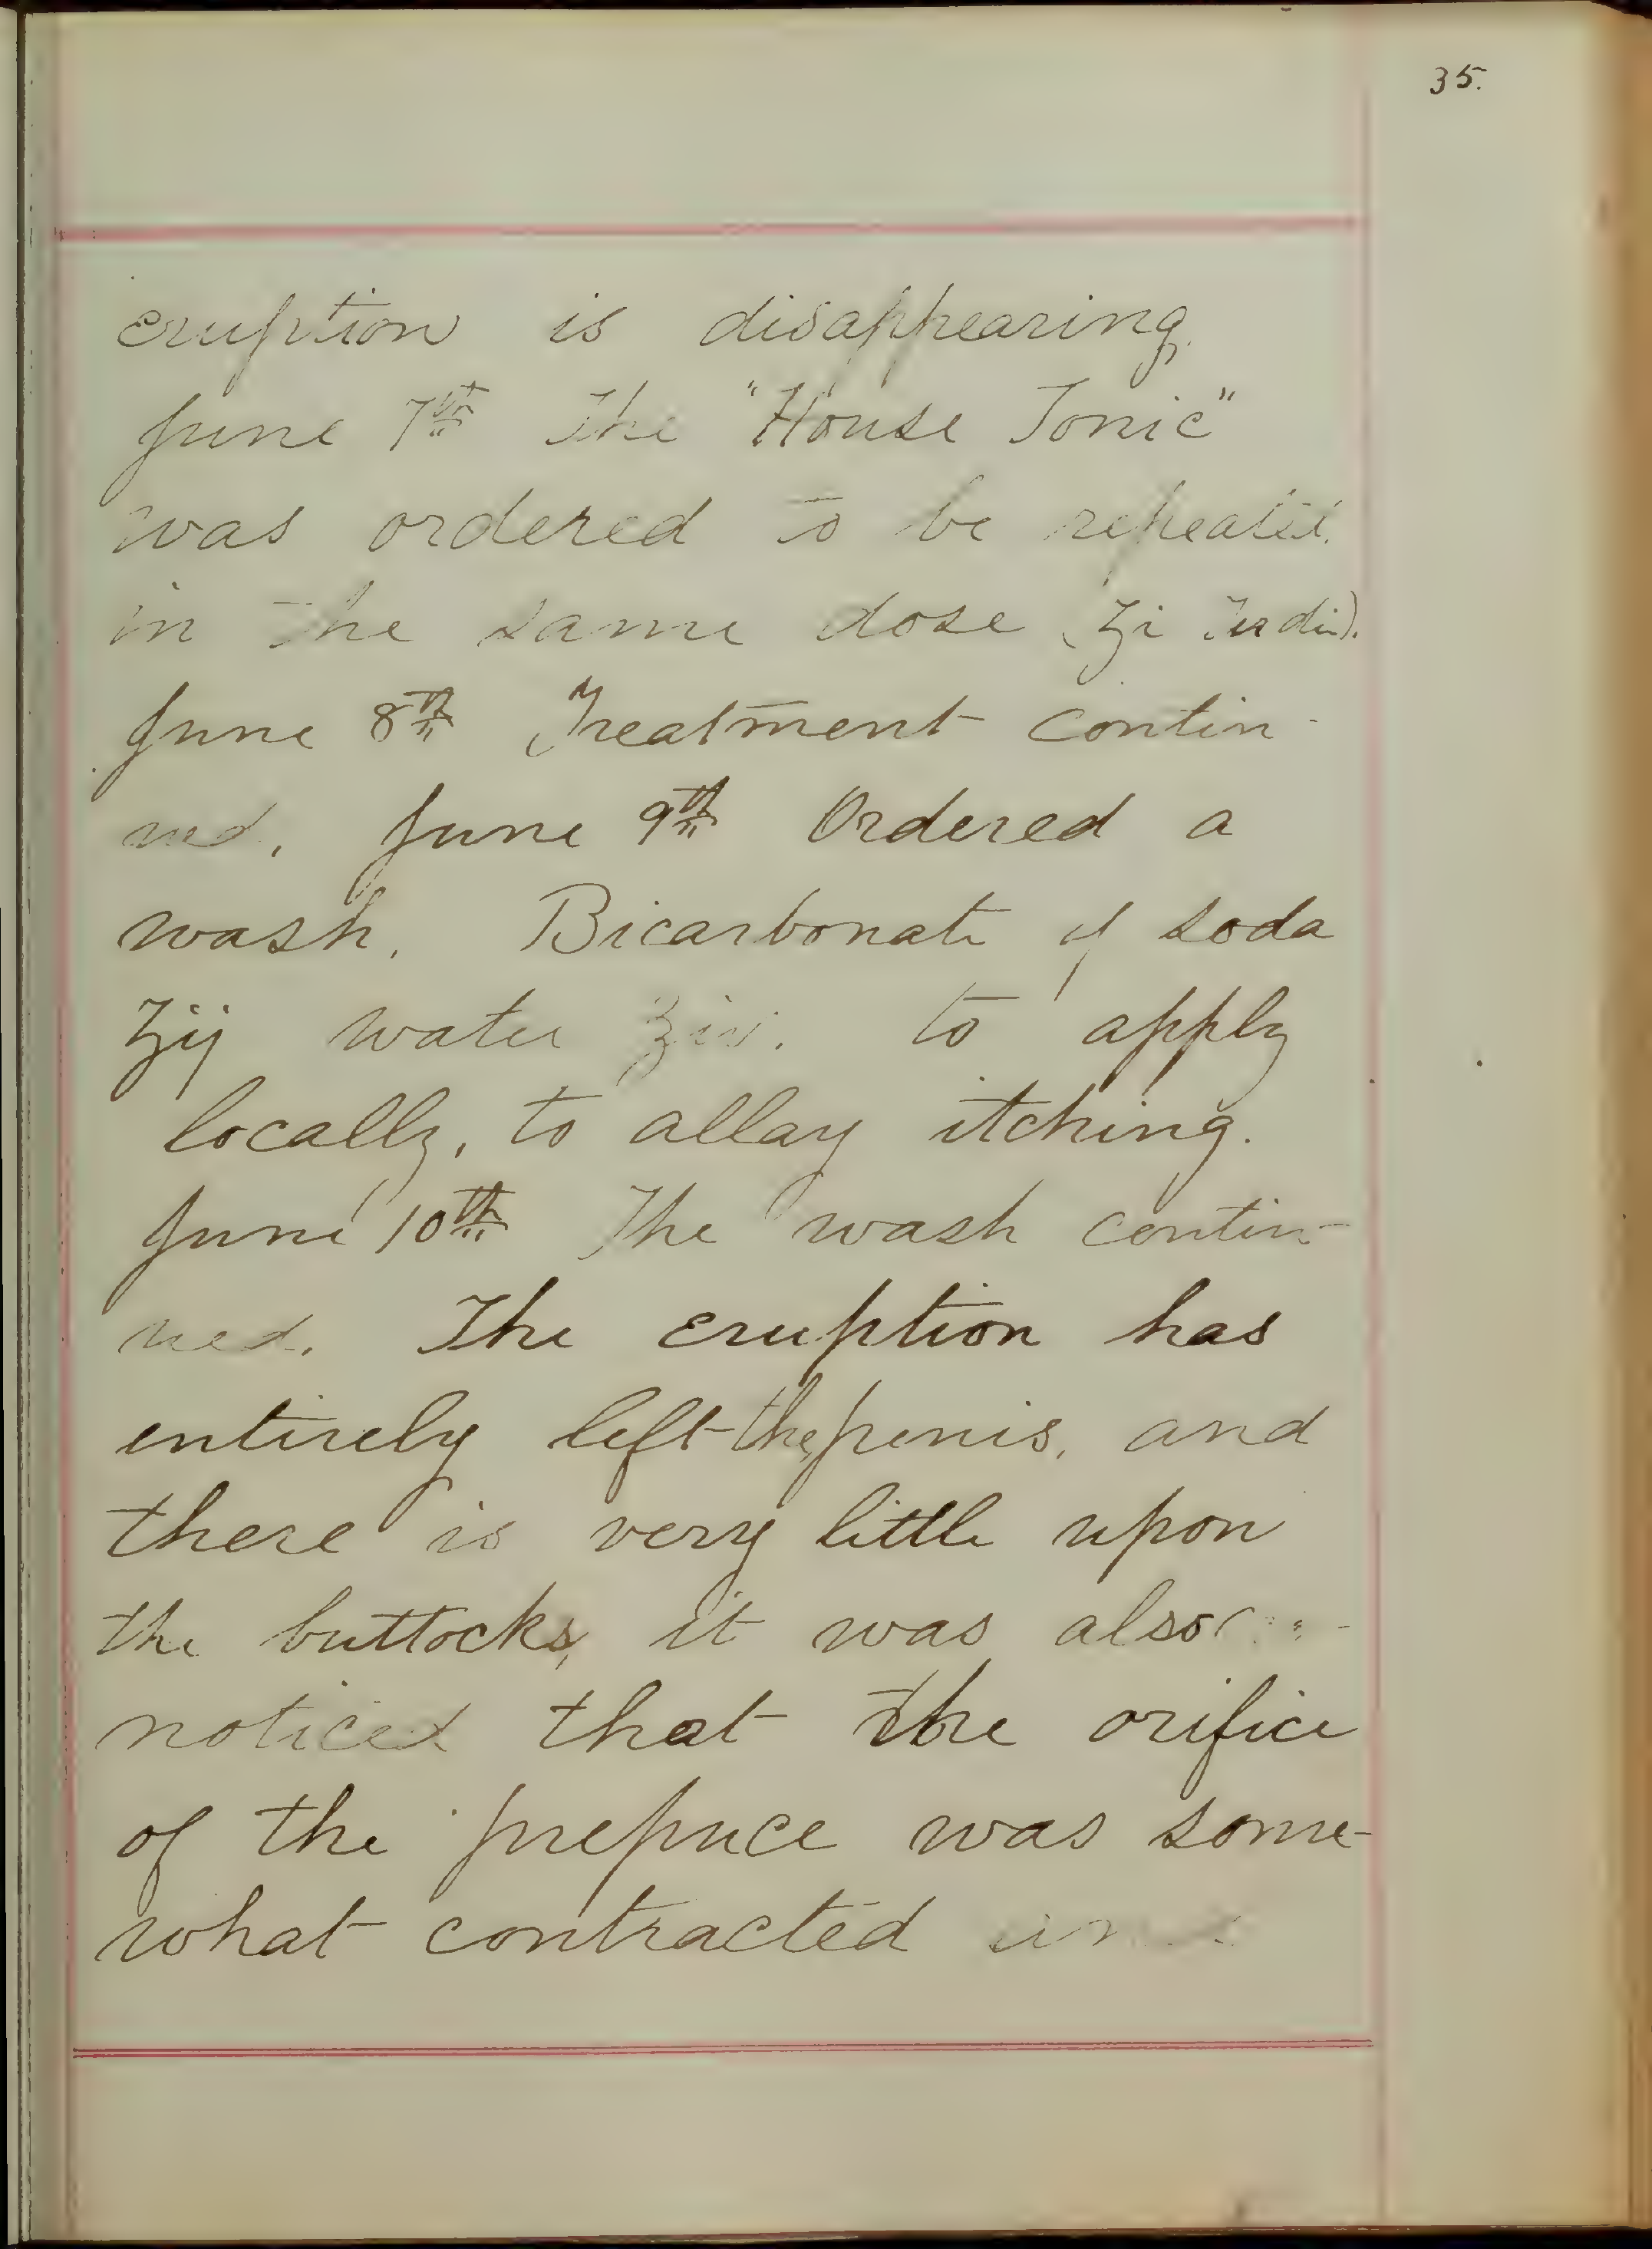 35.
eruption is disappearing.
June 7th The "House Tonic"
was ordered to be repeated
in the same dose (ʒi Ter di.).
June 8th Treatment contin-
ued. June 9th Ordered a
wash. Bicarbonate of soda
ʒij water ℥iv. to apply
locally, to allay itching.
June 10th The wash contin-
ued. The eruption has
entirely left the penis, and
there is very little upon
the buttocks, it was also
noticed that the orifice
of the prepuce was some-
what contracted and